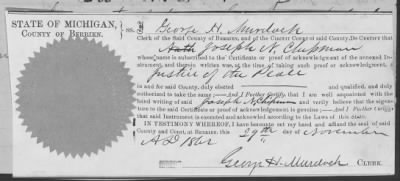 STATE OF MICHIGAN,
COUNTY OF BERRIEN. SS. I George H. Murdoch
Clerk of the Said County of BERRIEN, and of the CIRCUIT COURT of said County, Do CERTIFY that
Joseph N. Chapman
whose name is subscribed to the Certificate or proof of acknowledgment of the annexed Instrument, and therein written was, at the time of taking such proof or acknowledgment, a
Justice of the Peace
in and for said County, duly elected and qualified, and duly
authorized to take the same :—And I Further Certify, that I am well acquainted with the
hand writing of said Joseph N. Chapman and verily believe that the signature
to the said Certificate or proof of acknowledgment is genuine :—And I Further Certify
that said Instrument is executed and acknowledged according to the Laws of this state.
IN TESTIMONY WHEREOF, I have hereunto set my hand and affixed the seal of said
County and Court, at BERRIEN, this 29th day of November
A.D. 1862
George H. Murdoch CLERK.